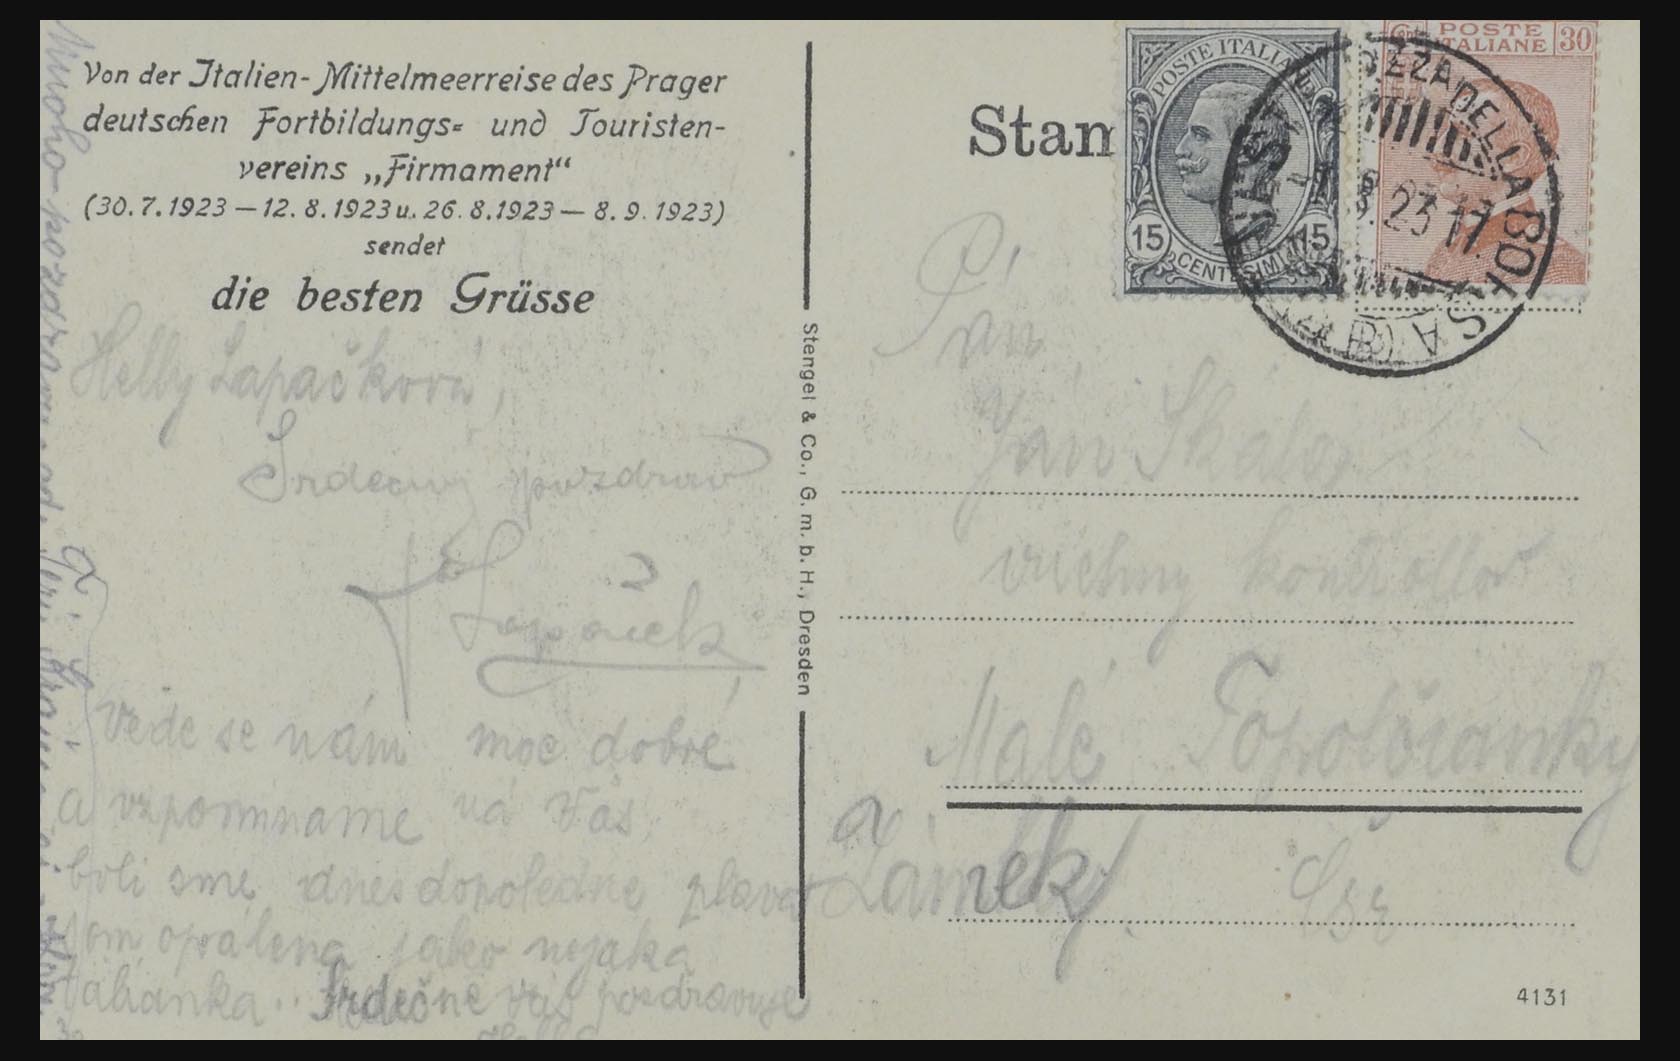 Von der Italien-Mittelmeerreise des Prager
deutschen Fortbildungs= und Touristen-
vereins „Firmament“
(30.7.1923 — 12.8.1923 u. 26.8.1923 — 8.9.1923)
sendet
die besten Grüsse
Helly Lapačková,
Srdečný pozdrav
Lapáček
Vede se nám moc dobré
a vzpomname na Vás,
boli sme dnes dopoledne plavat
som opálena jako nejaka
Italianka. Srdečne Vás pozdravuje
Helly
Mnoho pozdravu od
Stengel & Co., G. m. b. H., Dresden
Stam
POSTE ITALIANE
15 15
CENTESIMI
POSTE
ITALIANE 30
23 17
Pán
Ján Skalos
vrchny kontrollor
Malé Topolčianky
a Zámek
Čsr
4131